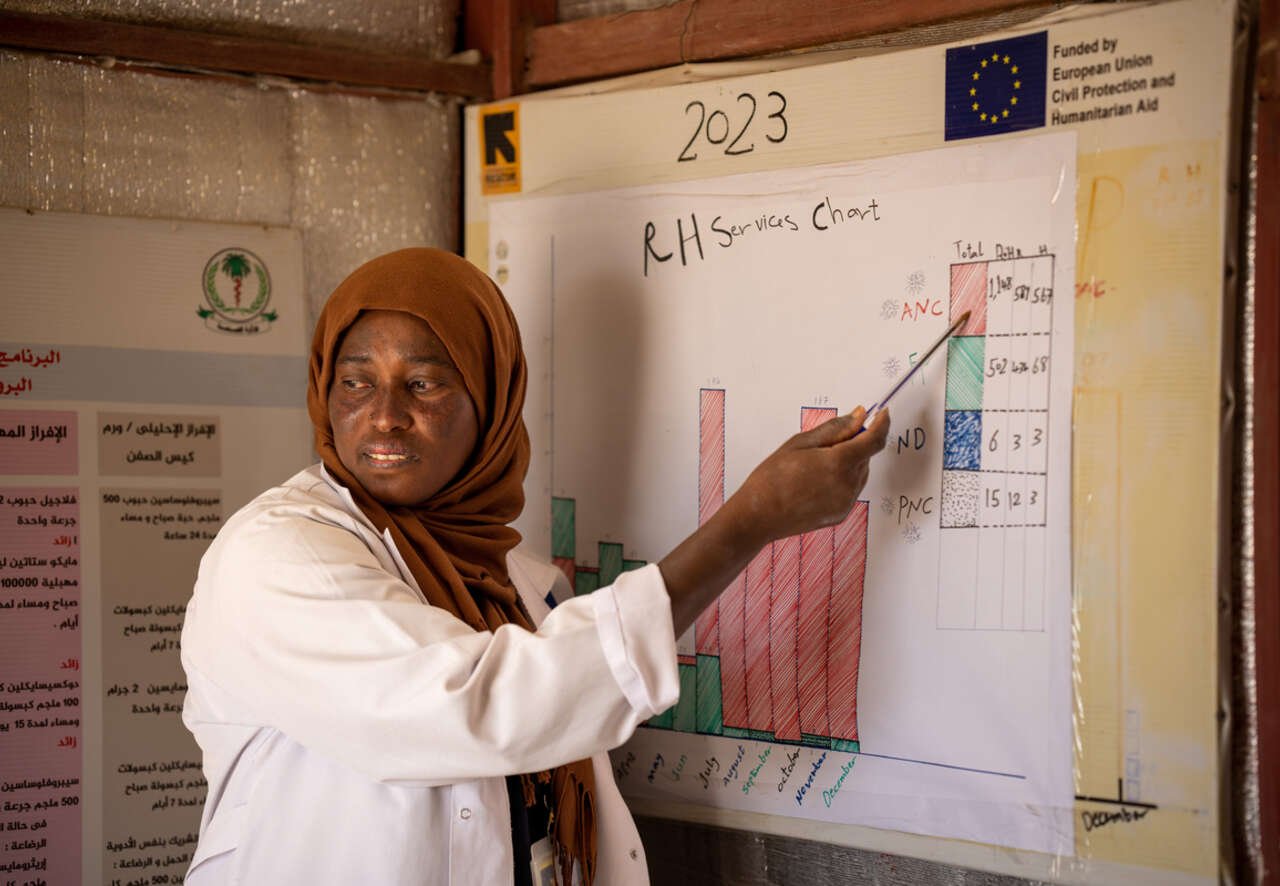 البرنامج
البرو
الإفراز المه
الإفراز الإحليلى / ورم
كيس الصفن
فلاجيل حبوب 2
جرعة واحدة
زائد
مايكو ستاتين لب
مهبلية 100000
صباح ومساء لمدة
أيام .
زائد
دوكسيسايكلين ك
100 ملجم كبسولة
ومساء لمدة 15 يو
زائد
سيبروفلوساسين
500 ملجم جرعة
فى حالة
الرضاعة :
إريثرومايس
سيبروفلوساسين حبوب 500
ملجم، حبة صباح و مساء
لمدة 24 ساعة
سايكلين كبسولات
كبسولة صباح
7 أيام
مايسين 2 جرام
واحدة
سايكلين كبسولات
كبسولة صباح
7 أيام
الشريك بنفس الأدوية
الحمل و الرضاعة :
500 ملجم
RESCUE
2023
Funded by
European Union
Civil Protection and
Humanitarian Aid
RH Services Chart
Total H
ANC 1,148 567
502 68
ND 6 3 3
PNC 15 12 3
May
Jun
July
August
September
October
November
December
December